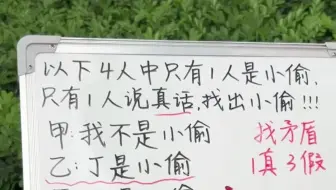 以下4人中只有1人是小偷,
只有1人说真话,找出小偷!!!
甲:我不是小偷
找矛盾
乙:丁是小偷
1真3假